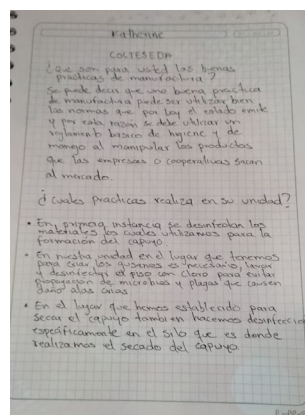 Katherine
COCTESEDA
¿Que son para usted las buenas
practicas de manofactura?
Se puede decir que una buena practica
de manufactura puede ser utilizar bien
las normas que por ley el estado emite
y por esta razon se debe utilizar un
reglamento basico de higiene y de
manejo al manipular los productos
que las empresas o cooperativas sacan
al mercado.
¿Cuales practicas realiza en su unidad?
• En primera instancia se desinfectan los
materiales los cuales utilizamos para la
formación del capuyo.
• En nuestra unidad en el lugar que tenemos
para criar los gusanos es necesario, lavar
y desinfectar el piso con cloro para evitar
propagacion de microbios y plagas que causen
daño a las crias
• En el lugar que hemos establecido para
secar el capuyo tambien hacemos desinfeccion
especificamente en el silo que es donde
realizamos el secado del capuyo.